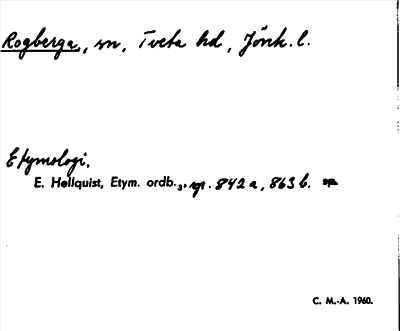 Rogberga, sn, Tveta hd, Jönk. l.
Etymologi.
E. Hellquist, Etym. ordb.3, sp. 842 a, 863 b.
C. M.-A. 1960.